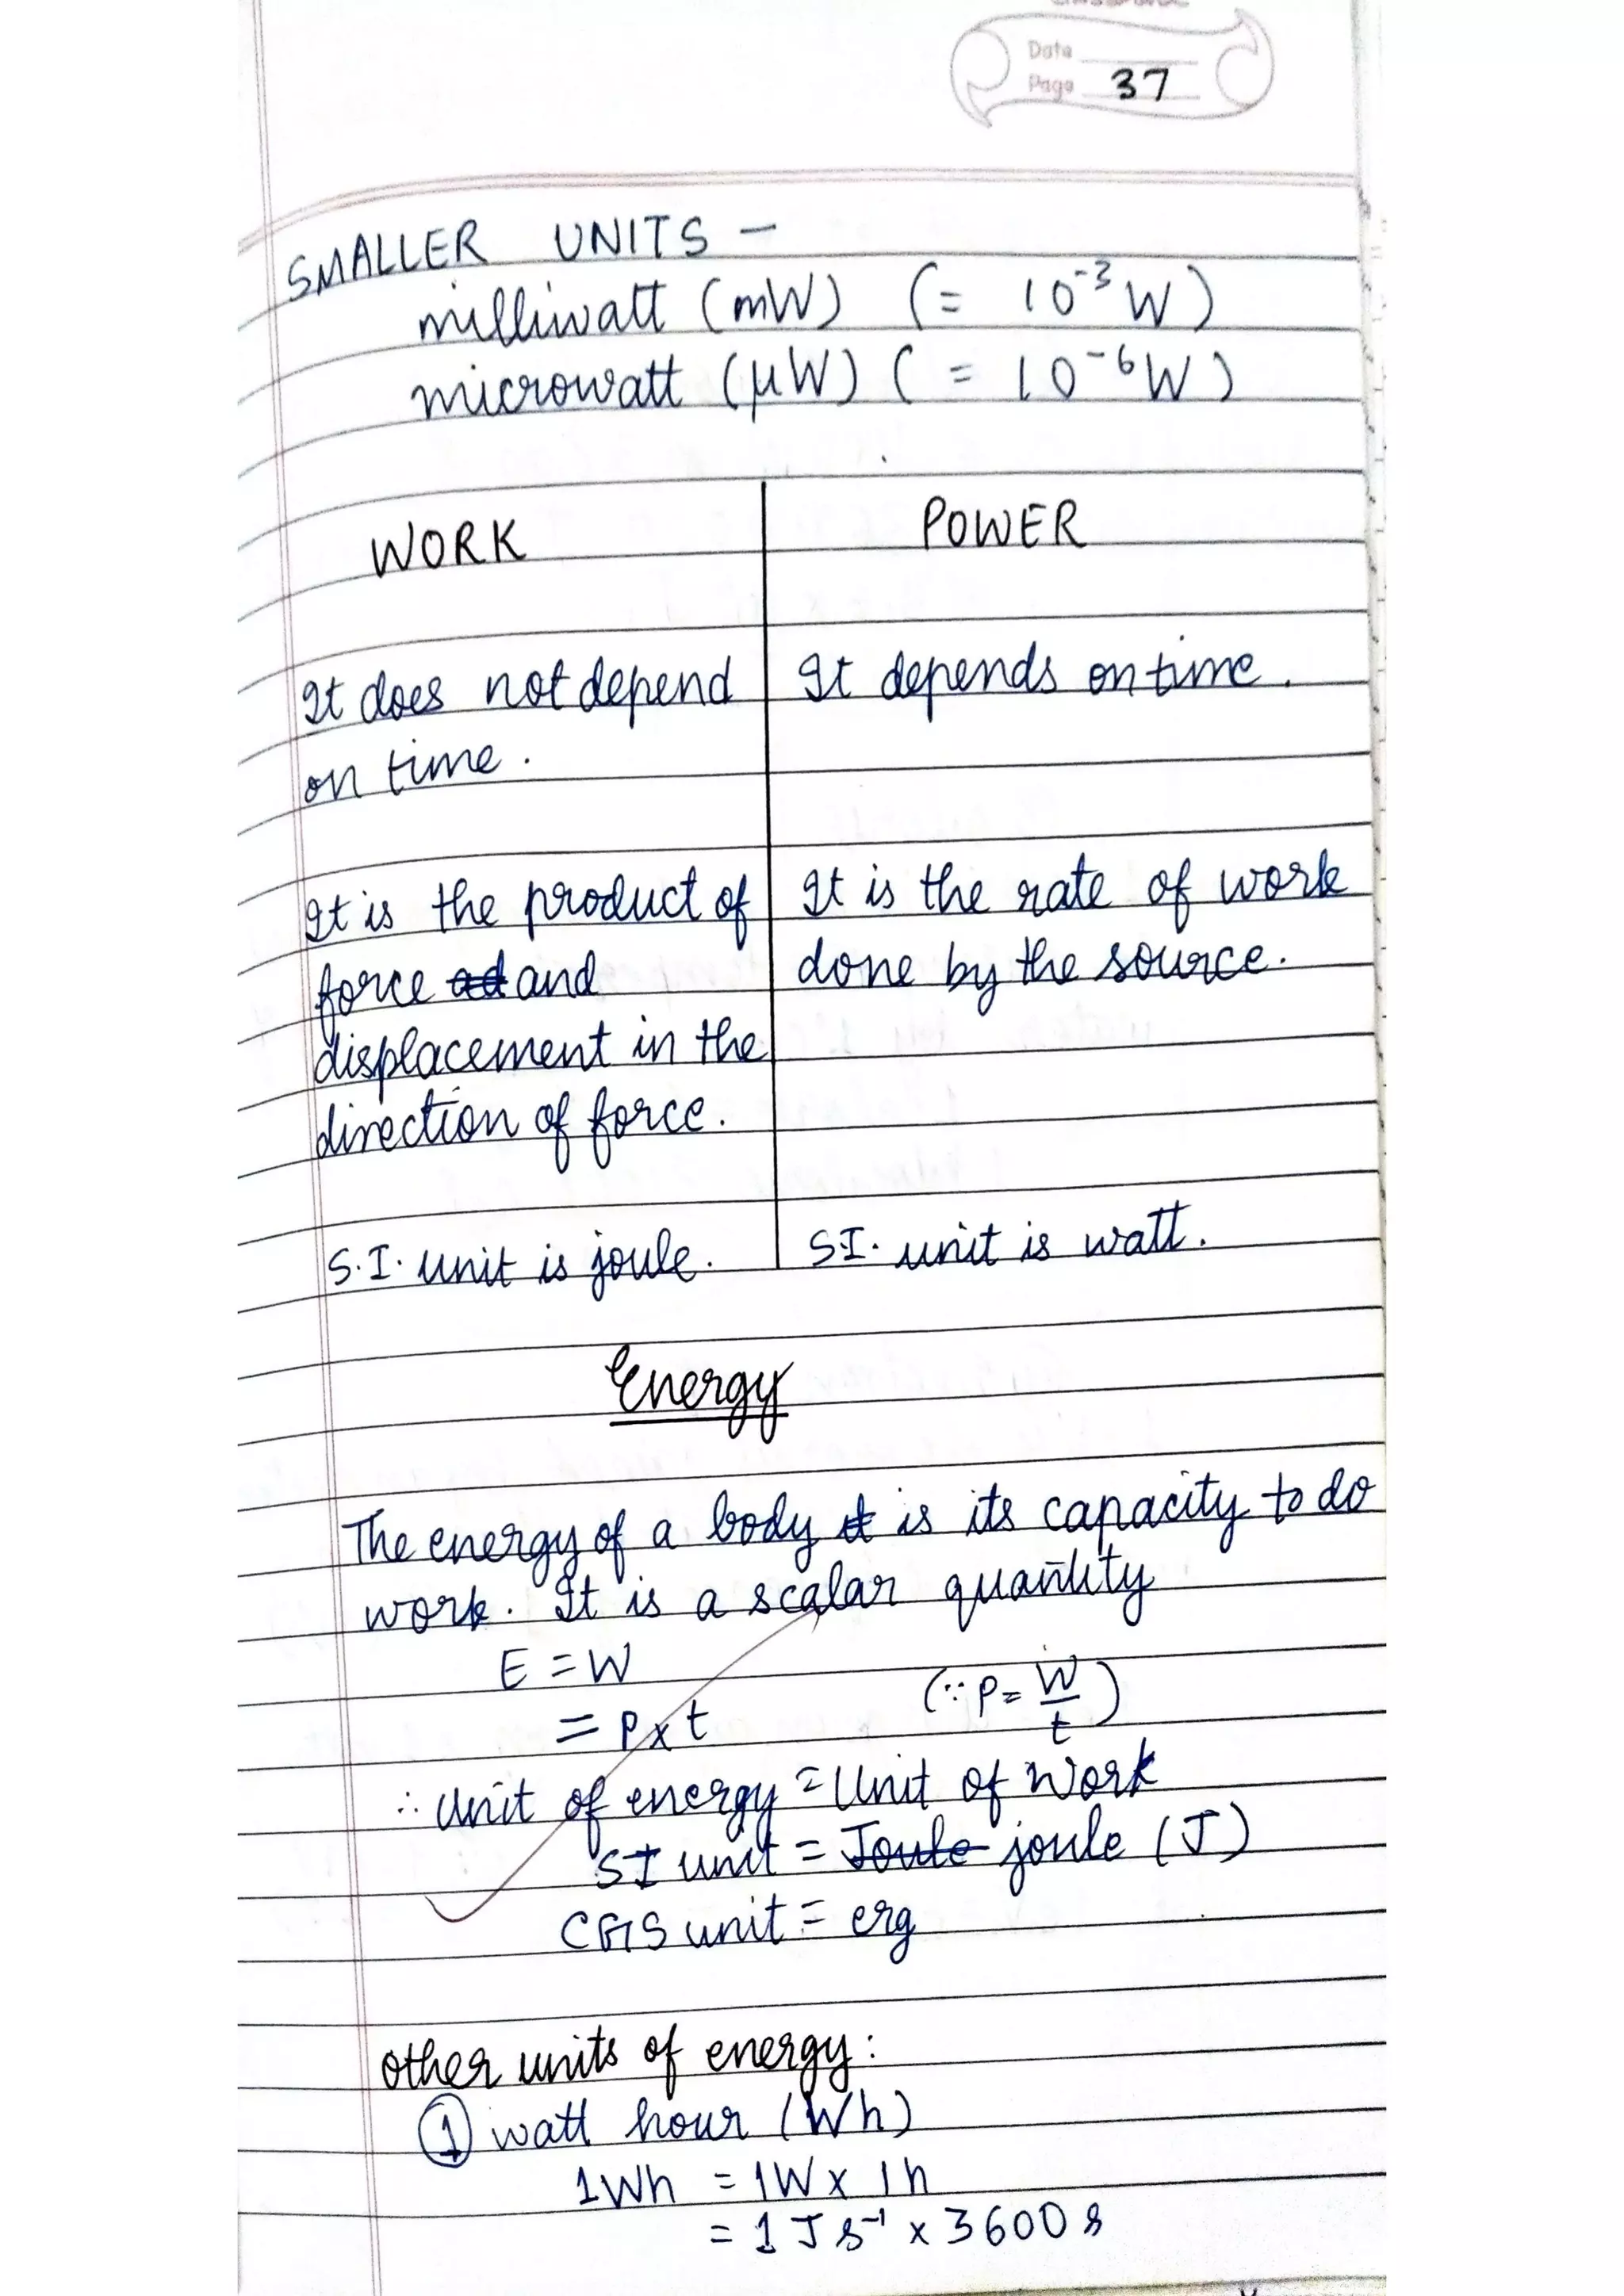 Date
Page 37
SMALLER UNITS -
milliwatt (mW) (= 10⁻³ W)
microwatt (μW) (= 10⁻⁶ W)
WORK | POWER
It does not depend | It depends on time.
on time.
It is the product of | It is the rate of work
force ~~ad~~ and | done by the source.
displacement in the
direction of force.
S.I. unit is joule. | S.I. unit is watt.
Energy
The energy of a body ~~it~~ is its capacity to do
work. It is a scalar quantity
E = W
= P x t (∵ P = W/t)
∴ Unit of energy = Unit of Work
SI unit = ~~Joule~~ joule (J)
CGS unit = erg
Other units of energy:
① watt hour (Wh)
1Wh = 1W x 1h
= 1 J s⁻¹ x 3600 s